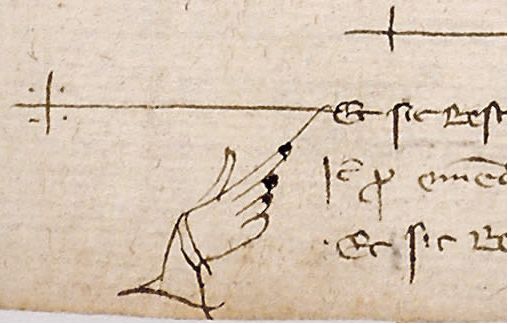 Et sic Rest
It p emend
Et sic Re